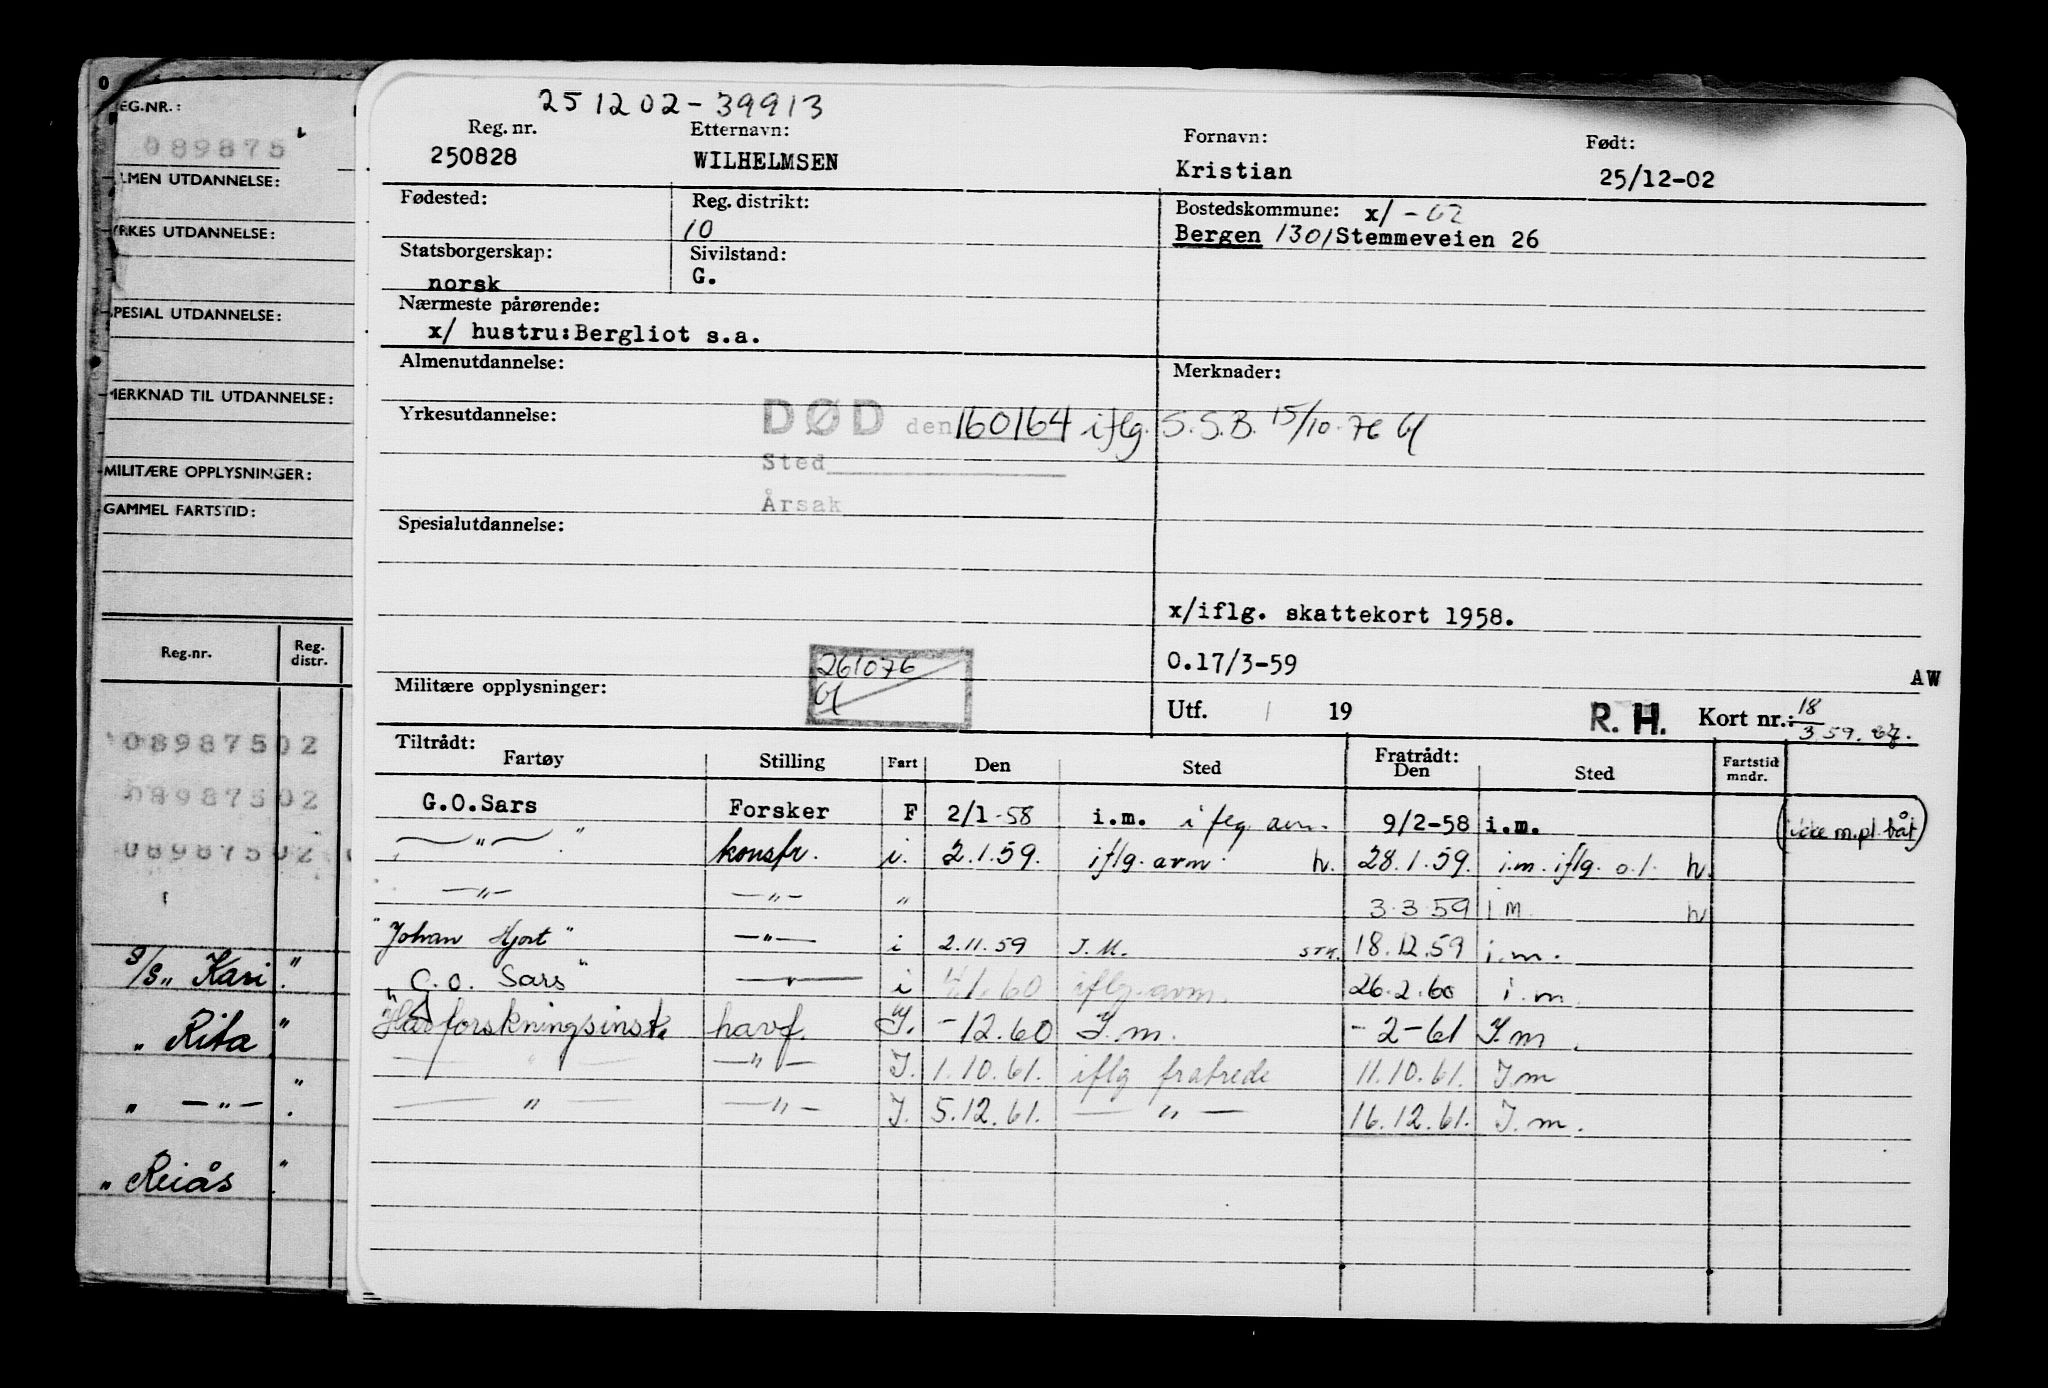 O
EG.NR.:
089875
LMEN UTDANNELSE:
YRKES UTDANNELSE:
SPESIAL UTDANNELSE:
MERKNAD TIL UTDANNELSE:
MILITÆRE OPPLYSNINGER:
GAMMEL FARTSTID:
Reg.nr. Reg. distr.
08987502
08987502
08987502
S/S „ Kari "
„ Rita "
„ — „ — "
„ Reiås "
251202-39913
Reg. nr. Etternavn: Fornavn: Født:
250828 WILHELMSEN Kristian 25/12-02
Fødested: Reg. distrikt: Bostedskommune: x/ -62
10 Bergen 1301 Stemmeveien 26
Statsborgerskap: Sivilstand:
norsk G.
Nærmeste pårørende:
x/ hustru:Bergliot s.a.
Almenutdannelse: Merknader:
Yrkesutdannelse: DØD den 160164 iflg. S.S.B. 15/10-76
Sted
Årsak
Spesialutdannelse:
x/iflg. skattekort 1958.
261076
O.17/3-59 AW
Militære opplysninger: Utf. / 19 R.H. Kort nr.: 18/3 59.
Tiltrådt: Fratrådt:
Fartøy Stilling Fart Den Sted Den Sted Fartstid mndr.
G.O.Sars Forsker F 2/1-58 i.m. iflg avm. 9/2-58 i.m. (ikke m.pl. båt)
— " — " konsfr. i. 2.1.59. iflg. avm. h. 28.1.59. i.m. iflg. o.l. h.
— " — — " — " 3.3.59 i m h
"Johan Hjort" — " — i 2.11.59 I.M. STK. 18.12.59 i.m.
"G.O. Sars" — " — i 4.1.60 iflg. avm. 26.2.60 i.m.
"Havforskningsinst. havf. I. -12.60 I.m. -2-61 I.m.
— " — — " — I. 1.10.61. iflg fratrede 11.10.61. I.m
— " — — " — I. 5.12.61. — " — 16.12.61. I.m.